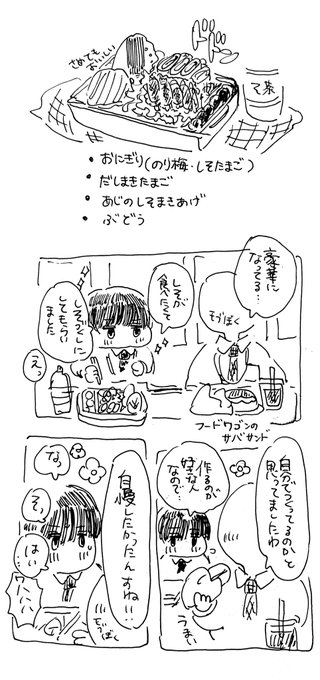 さめても
おいしい
ドドドン
て茶
・おにぎり(のり梅・しそたまご)
・だしまきたまご
・あじのしそまきあげ
・ぶどう
豪華に
なってる…
しそが
食べたくて
そぼく
しそづくしに
してもらい
ました
え。
フードワゴンの
サバサンド
自分でつくってるのかと
思ってましたわ
作るのが
好きな人
なので…
うまい
自慢したかったんすね!!
なっ
そ、
…はい…
ワハハハ
そぼく